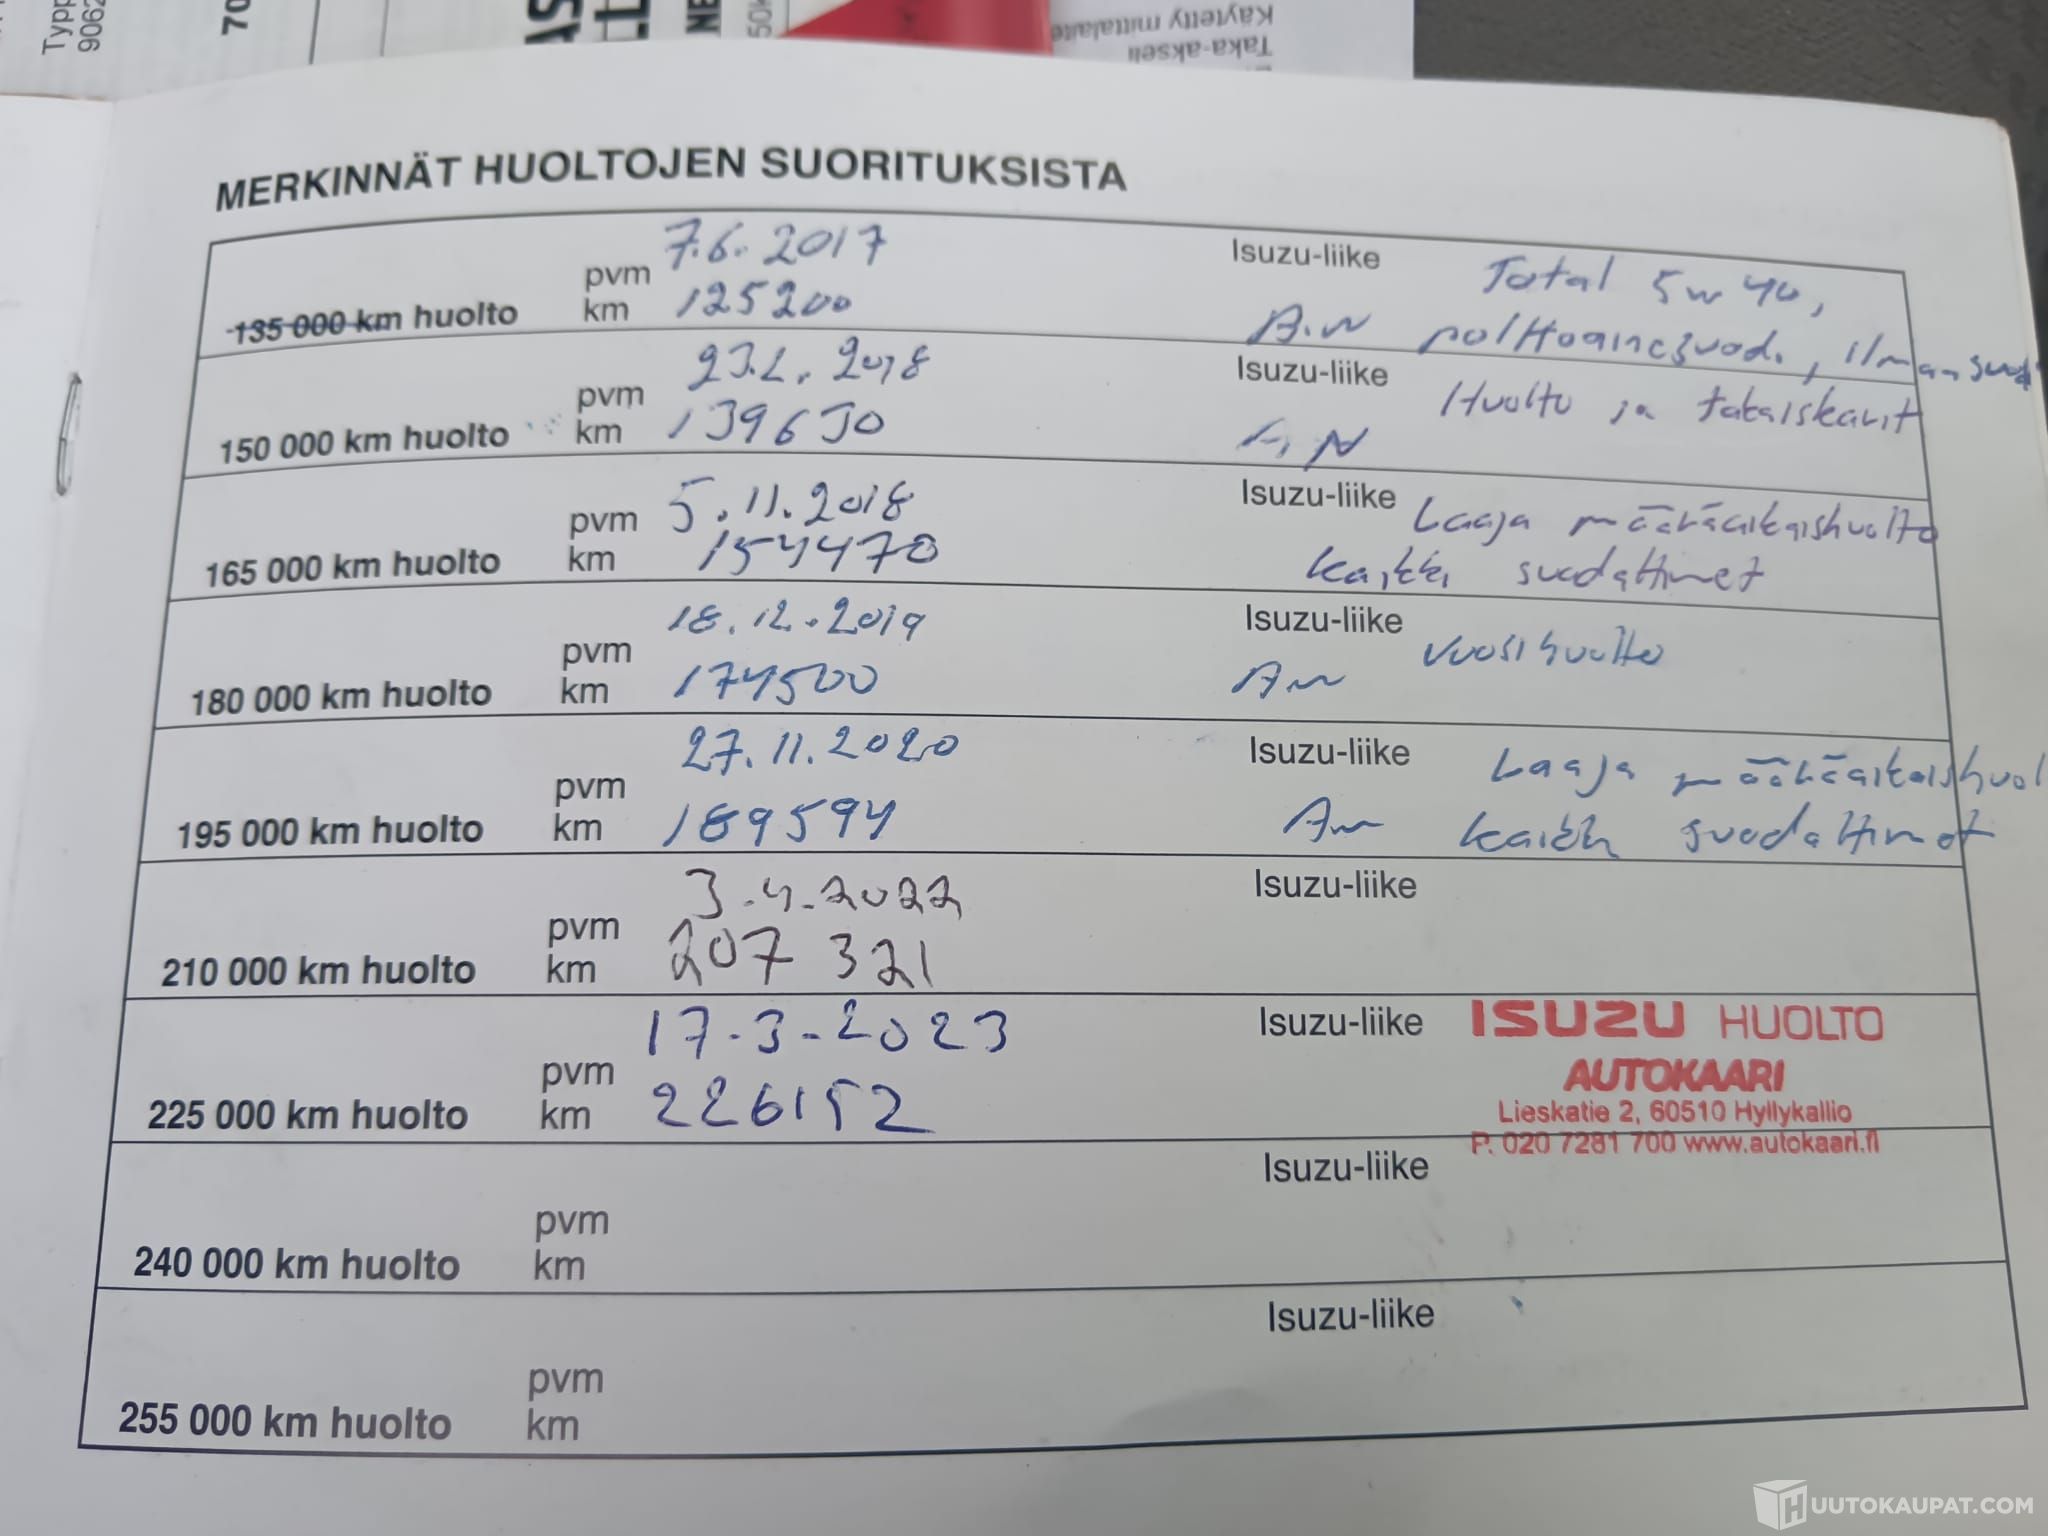 Typp
9062
70
50k
Käytetty mittalaite
Taka-akseli
MERKINNÄT HUOLTOJEN SUORITUKSISTA
135 000 km huolto
pvm 7.6.2017
km 125200
Isuzu-liike Total 5w40,
A.N polttoainesuod., ilmansuod
150 000 km huolto
pvm 23.2.2018
km 139630
Isuzu-liike Huolto ja takaiskarit
A.N
165 000 km huolto
pvm 5.11.2018
km 154470
Isuzu-liike Laaja määräaikaishuolto
kaikki suodattimet
180 000 km huolto
pvm 18.12.2019
km 174500
Isuzu-liike vuosihuolto
AN
195 000 km huolto
pvm 27.11.2020
km 189594
Isuzu-liike Laaja määräaikaishuol
AN kaikki suodattimet
210 000 km huolto
pvm 3.4.2022
km 207 321
Isuzu-liike
225 000 km huolto
pvm 17.3.2023
km 226152
Isuzu-liike
ISUZU HUOLTO
AUTOKAARI
Lieskatie 2, 60510 Hyllykallio
P. 020 7281 700 www.autokaari.fi
240 000 km huolto
pvm
km
Isuzu-liike
255 000 km huolto
pvm
km
Isuzu-liike
HUUTOKAUPAT.COM